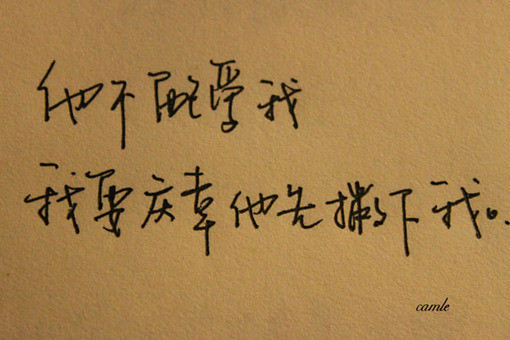 他不配受我
我要庆幸他先撇下我。
camle